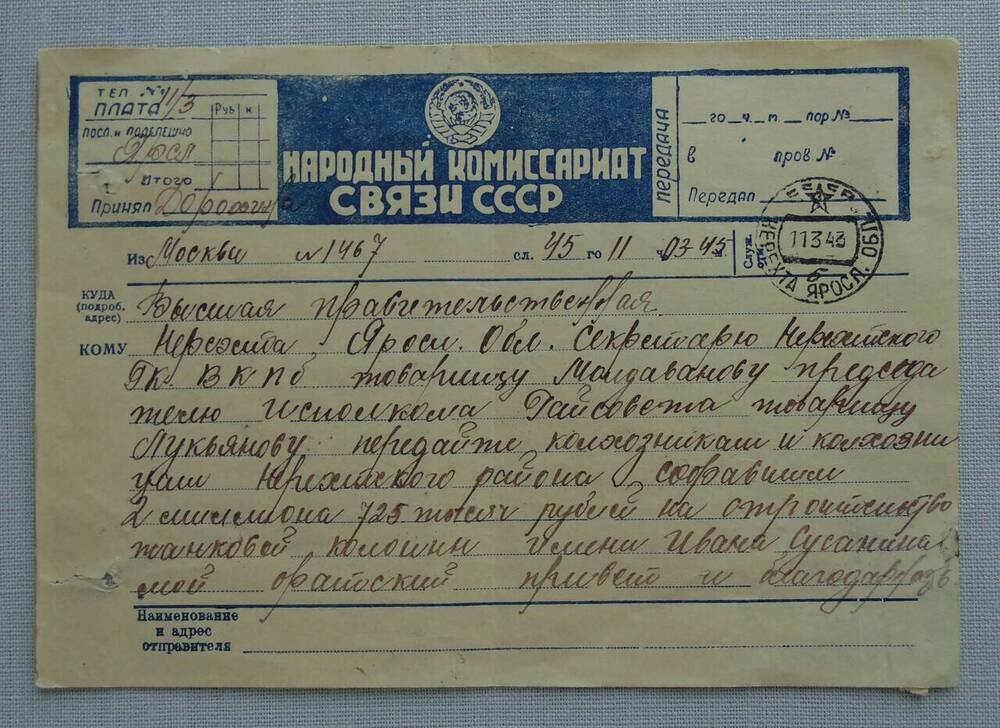 ТЕЛ №
ПЛАТА 1/3
Руб К
ПОСЛ. И ПОДЕПЕШНО
Яросл
Итого
Принял Дорофина
НАРОДНЫЙ КОМИССАРИАТ
СВЯЗИ СССР
ПЕРЕДАЧА
го ч. т. пор №
в пров №
Передал
НЕРЕХТА ЯРОСЛ. ОБЛ
11 3 43
б
Из Москвы №1467 сл. 45 го 11 ч. 03-45 м.
Служ. отм.
КУДА (подроб. адрес) Высшая правительственная
КОМУ Нерехта Яросл. Обл. Секретарю Нерехтского
РК. ВКПб товарищу Молдаванову председа
телю исполкома Райсовета товарищу
Лукьянову передайте колхозникам и колхозни
цам Нерехтского района собравшим
2 миллиона 725 тысяч рублей на строительство
танковой колонны имени Ивана Сусанина
мой братский привет и благодарность
Наименование
и адрес
отправителя